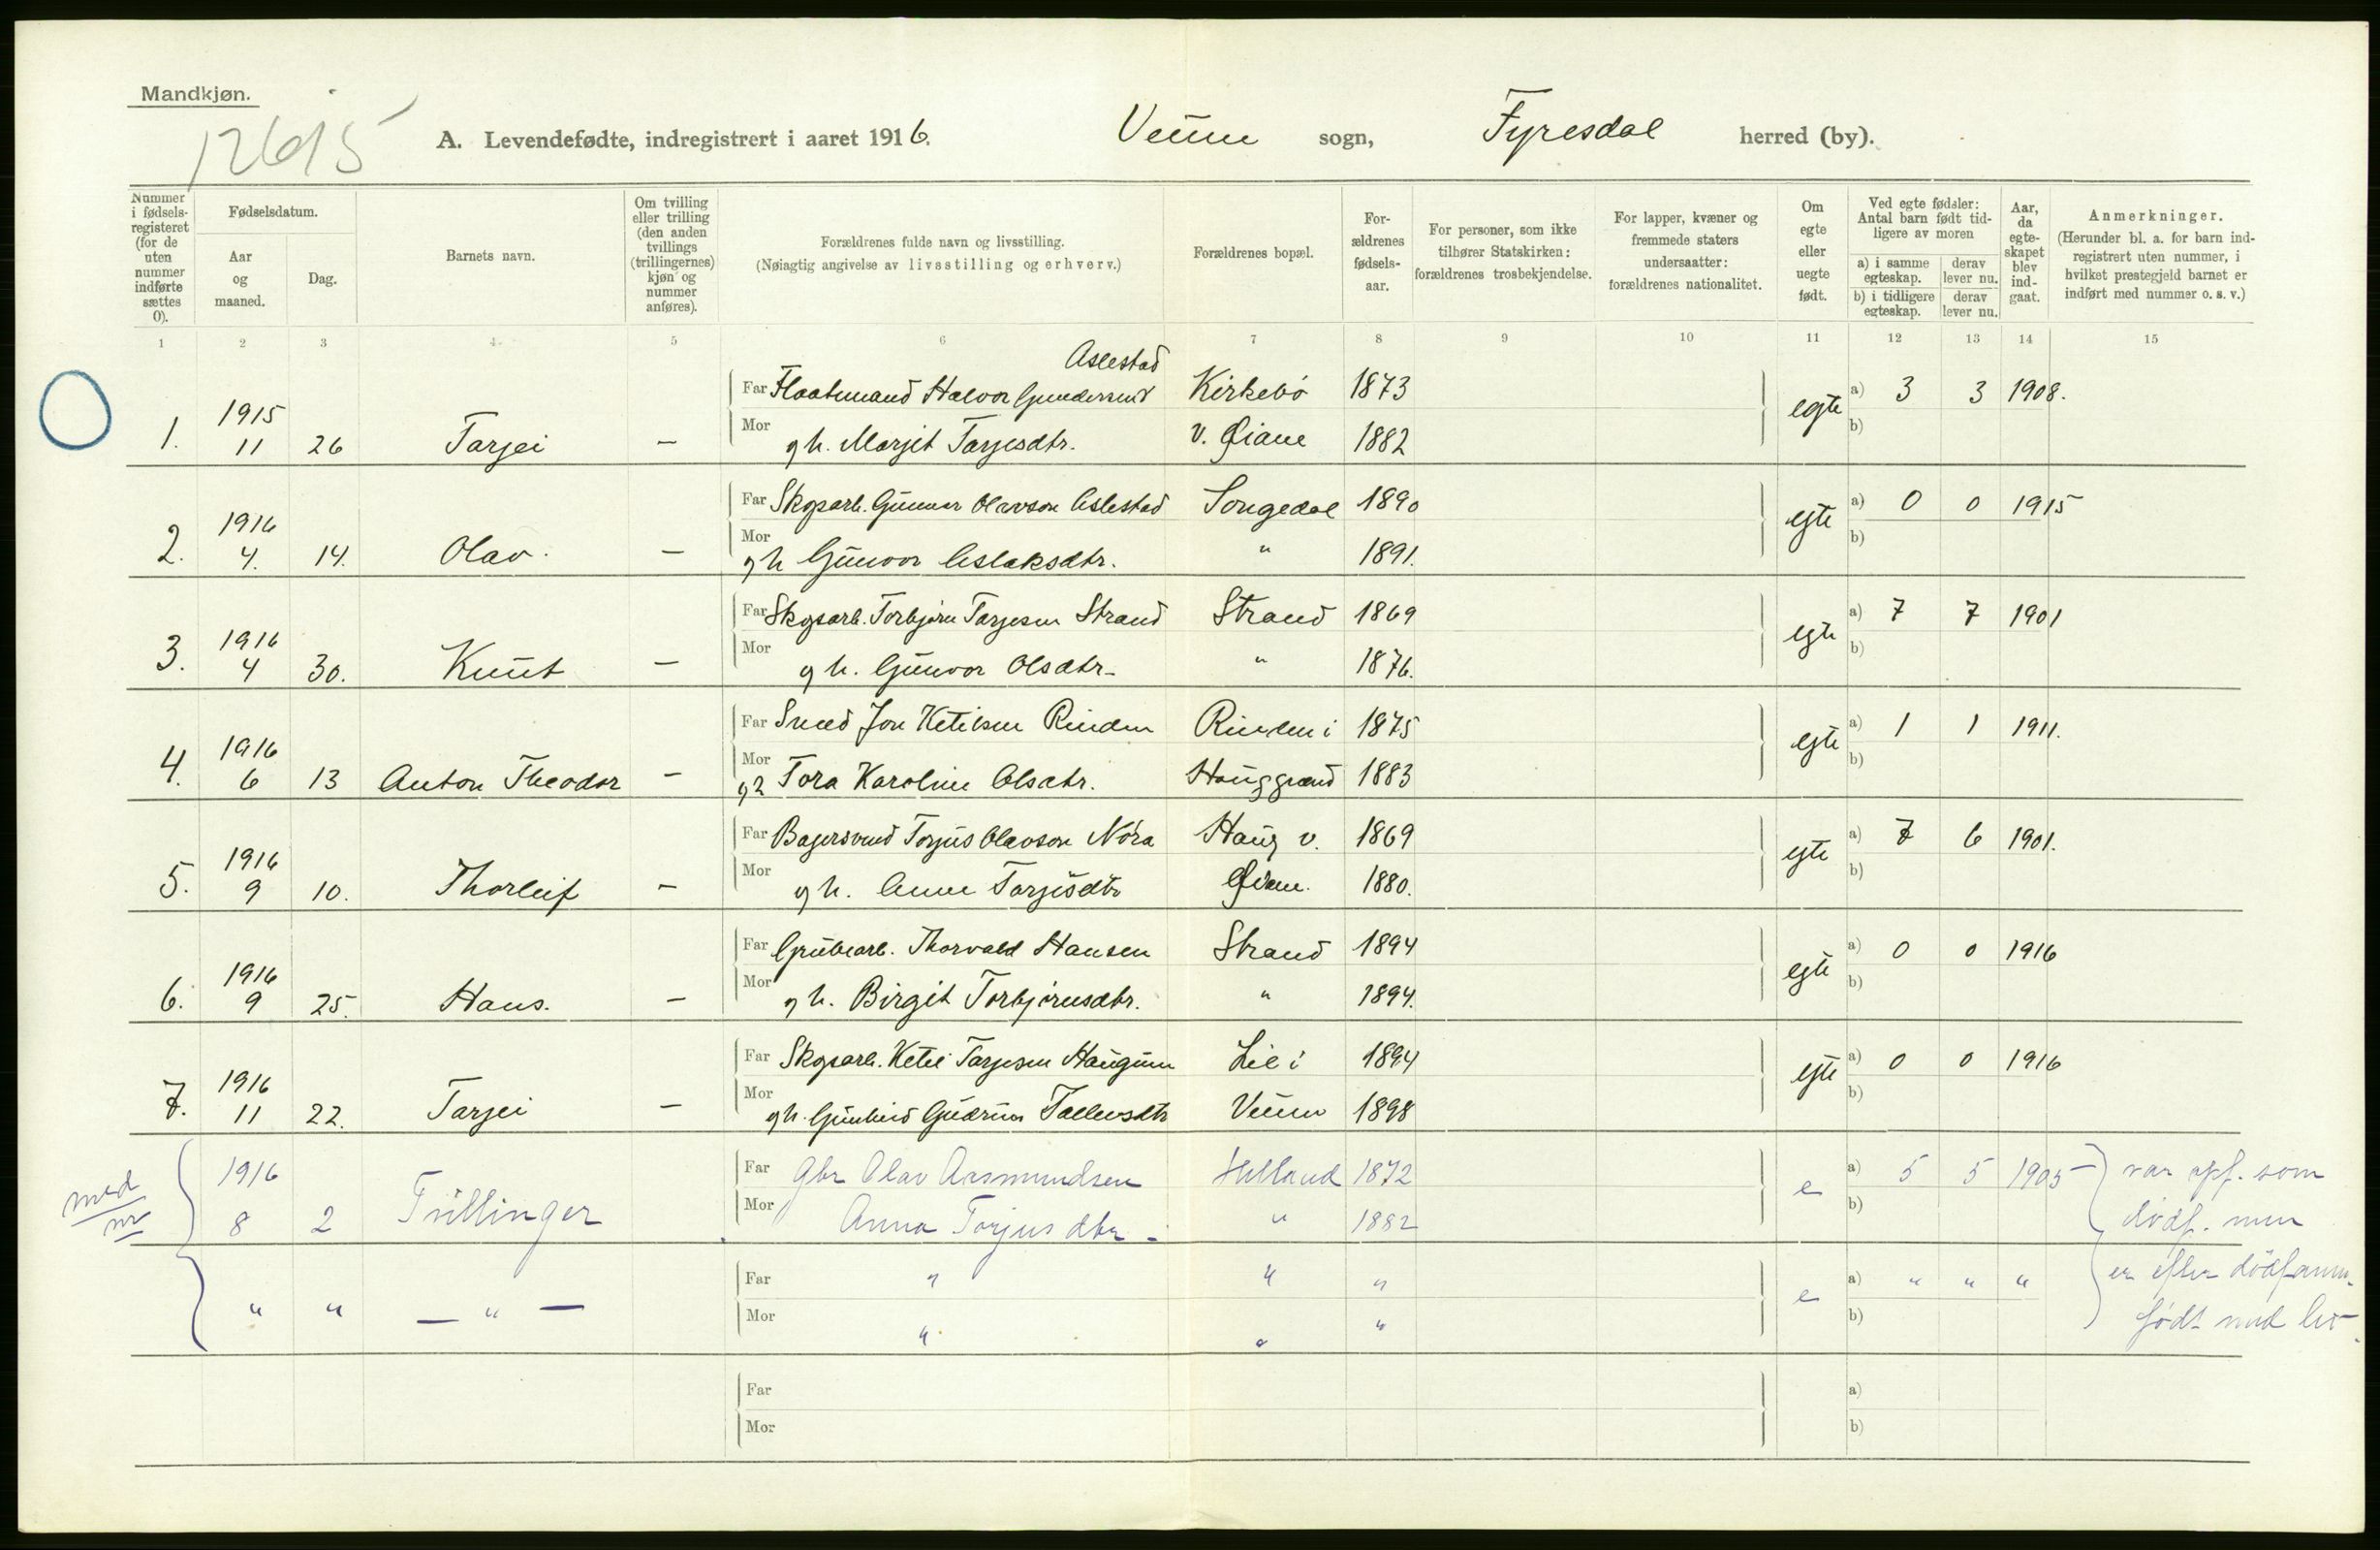 Mandkjøn.
12615
A. Levendefødte, indregistrert i aaret 1916. Veum sogn, Fyresdal herred (by).
Nummer i fødsels-registeret (for de uten nummer indførte sættes 0).
Fødselsdatum.
Aar og maaned.
Dag.
Barnets navn.
Om tvilling eller trilling (den anden tvillings (trillingernes) kjøn og nummer anføres).
Forældrenes fulde navn og livsstilling.
(Nøiagtig angivelse av livsstilling og erhverv.)
Forældrenes bopæl.
For-ældrenes fødsels-aar.
For personer, som ikke tilhører Statskirken: forældrenes trosbekjendelse.
For lapper, kvæner og fremmede staters undersaatter: forældrenes nationalitet.
Om egte eller uegte født.
Ved egte fødsler: Antal barn født tid-ligere av moren
a) i samme egteskap. derav lever nu.
b) i tidligere egteskap. derav lever nu.
Aar, da egte-skapet blev ind-gaat.
Anmerkninger.
(Herunder bl. a. for barn ind-registrert uten nummer, i hvilket prestegjeld barnet er indført med nummer o. s. v.)
1 2 3 4 5 6 7 8 9 10 11 12 13 14 15
Aslestad
1915 Far Halvor Kirkebø 1873 egte a) 3 3 1908.
1. 11 26 Tarjei — Mor g h. Margit Tarjesdtr. v. Øiane 1882 b)
1916 Far Skogsarb. Gunnar Olavson Aslestad Songedal 1890 egte a) 0 0 1915
2. 4. 14. Olav. — Mor g h Gunvor Aslaksdtr. " 1891. b)
1916 Far Skogsarb. Torbjørn Tarjesen Strand Strand 1869 egte a) 7 7 1901
3. 4 30. Knut — Mor g h. Gunvor Olsdtr. " 1876. b)
1916 Far Smed Jon Ketilsen Rinden Rinden i 1875 egte a) 1 1 1911.
4. 6 13 Anton Theodor — Mor g h Tora Karoline Olsdtr. Hauggrænd 1883 b)
1916 Far Torjus Olavson Haug v. 1869 egte a) 7 6 1901.
5. 9 10. Thorleif — Mor g h. Anne Tarjesdtr Øiane. 1880. b)
1916 Far Grubearb. Thorvald Hansen Strand 1894 egte a) 0 0 1916
6. 9 25. Hans. — Mor g h. Birgit Torbjørnsdtr. " 1894. b)
1916 Far Skogsarb. Ketil Tarjesen Haugum Lie i 1894 egte a) 0 0 1916
7. 11 22. Tarjei — Mor g h. Gunhild Gudrun Veum 1898 b)
med 1916 Far Gbr Olav Aasmundsen Helland 1872 e a) 5 5 1905 var opf. som
nr 8 2 Trillinger Mor Anna Torjusdtr. " 1882 b) dødf. men
Far " " " a) " " " er efter dødfanm.
" " — " — Mor " " " e b) født med liv.
Far a)
Mor b)